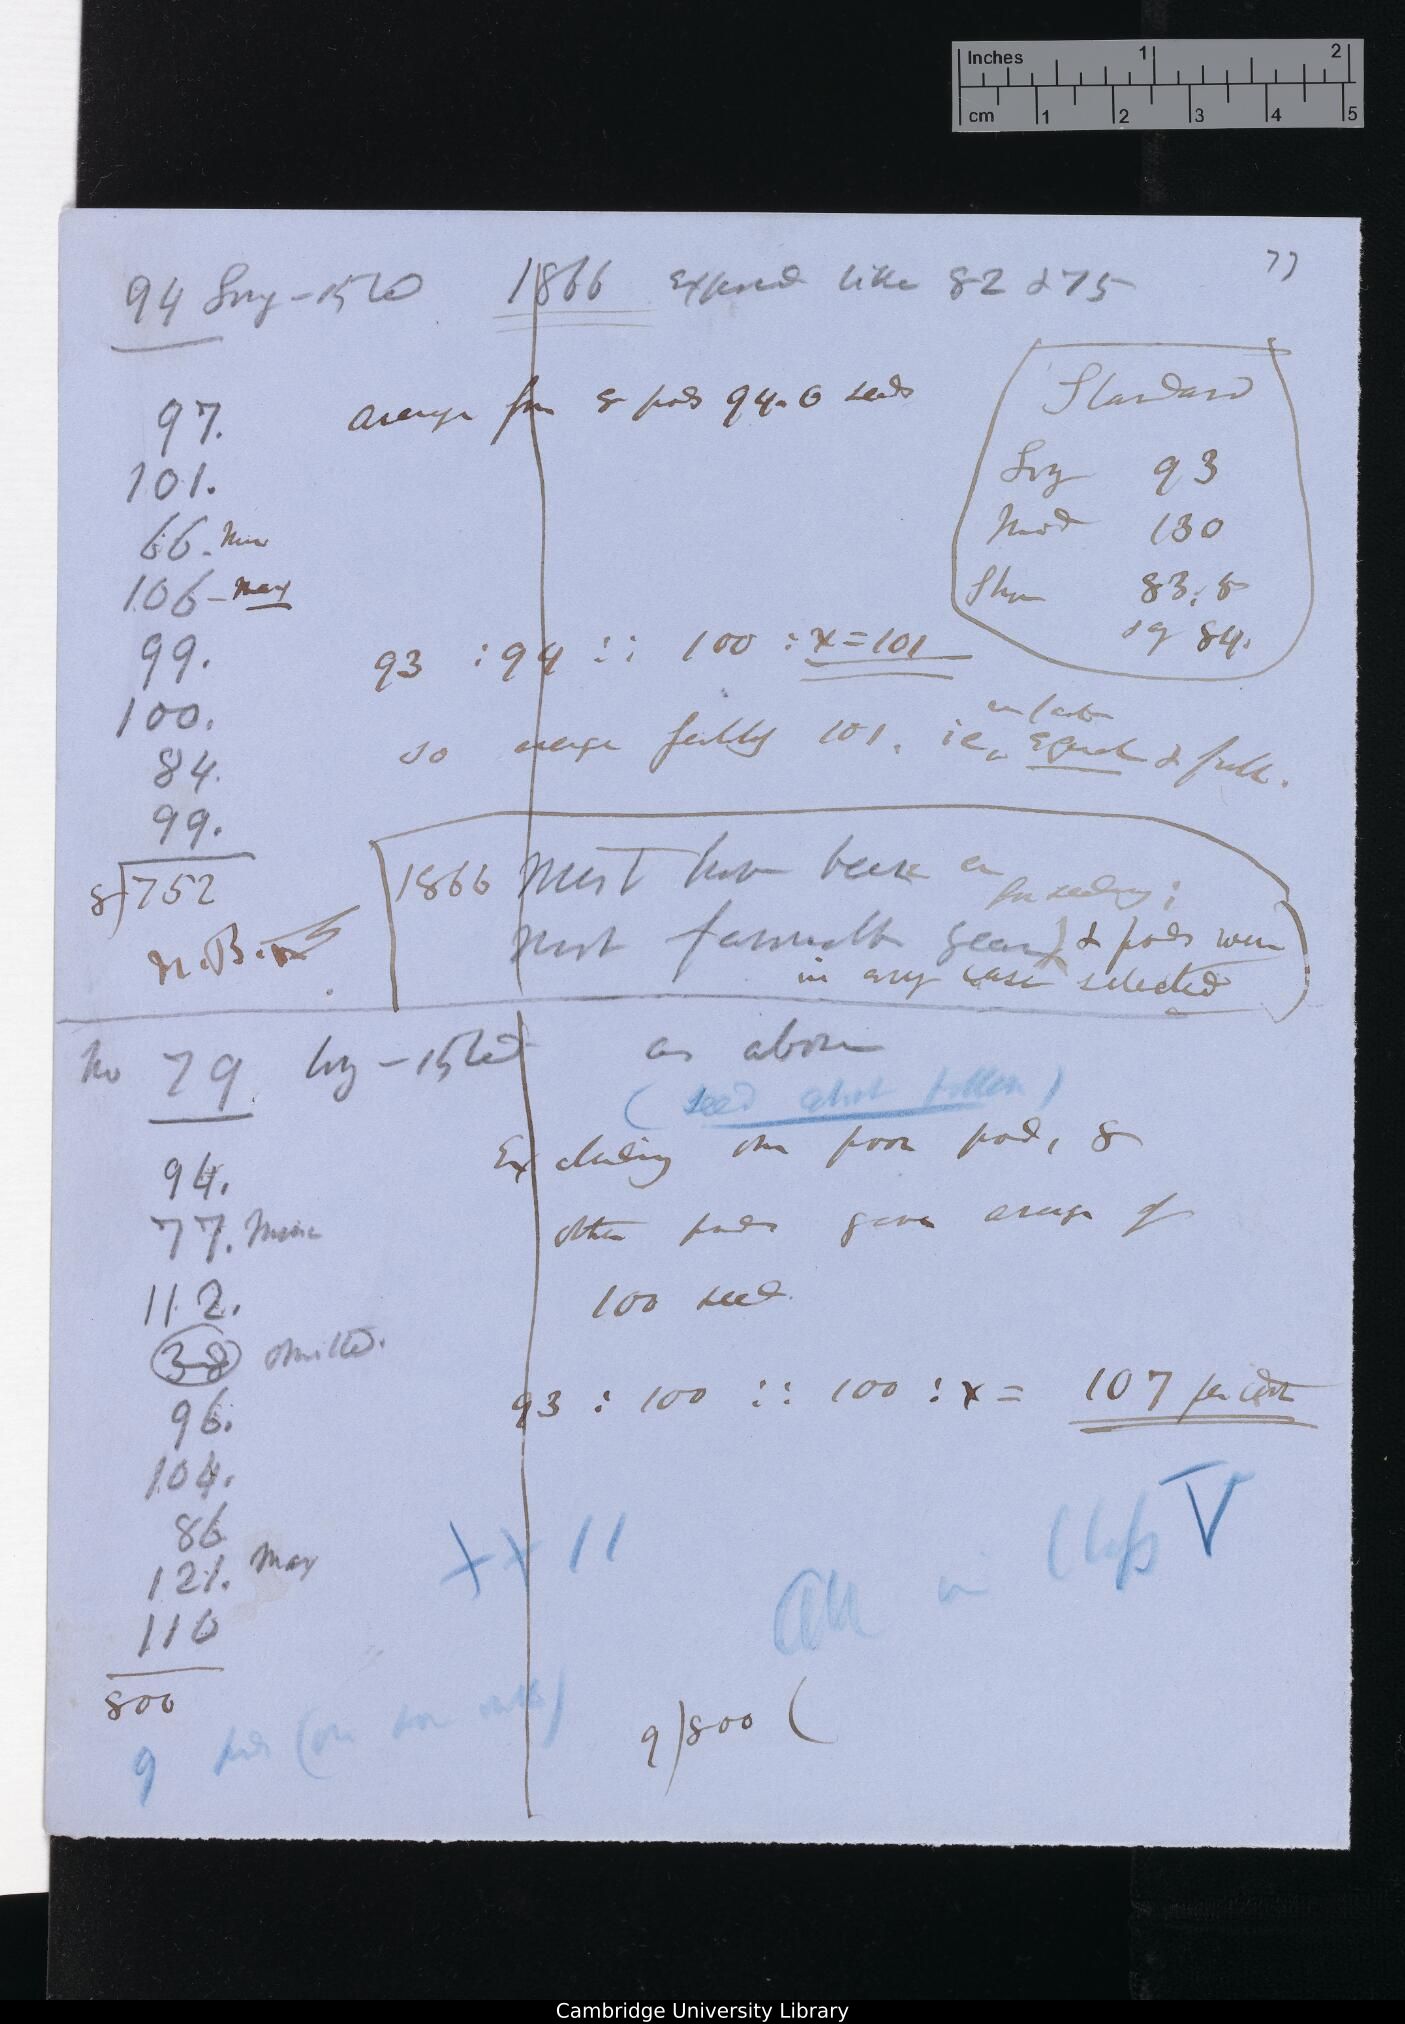 Inches 1 2
cm 1 2 3 4 5
77
94 Long-styled 1866 Exposed like 82 & 75
97.
average from 8 pods 94.0 seeds
101.
66. Min
106 - Max
99.
100.
84.
99.
8)752
N.B.
Standard
Long 93
Mid 130
Short 83.8
or 84.
93 : 94 :: 100 : x = 101
so average fertility 101. i.e. equal & full.
1866 Must have been an
most favourable year for seeding; & pods were
in any case selected
No 79 Long-styled as above
(seed almost fallen)
94.
77. Min
112.
38 omitted.
96.
104.
86
121. Max
110
800
Excluding one poor pod, 8
other pods gave average of
100 seed
93 : 100 :: 100 : x = 107 per cent
++ 11
All in Class V
9 pods
9)800(
Cambridge University Library